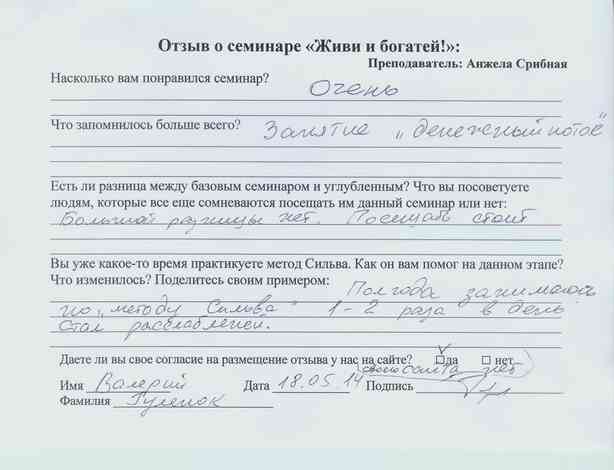 Отзыв о семинаре «Живи и богатей!»:
Преподаватель: Анжела Срибная
Насколько вам понравился семинар?
Очень
Что запомнилось больше всего? Занятие „денежный поток"
Есть ли разница между базовым семинаром и углубленным? Что вы посоветуете
людям, которые все еще сомневаются посещать им данный семинар или нет:
Большой разницы нет. Посещать стоит
Вы уже какое-то время практикуете метод Сильва. Как он вам помог на данном этапе?
Что изменилось? Поделитесь своим примером: Полгода занимаюсь
по „методу Сильва" 1-2 раза в день
Стал расслабленей.
Даете ли вы свое согласие на размещение отзыва у нас на сайте? да нет
сайта нет
Имя Валерий Дата 18.05.14 Подпись
Фамилия Гуленок